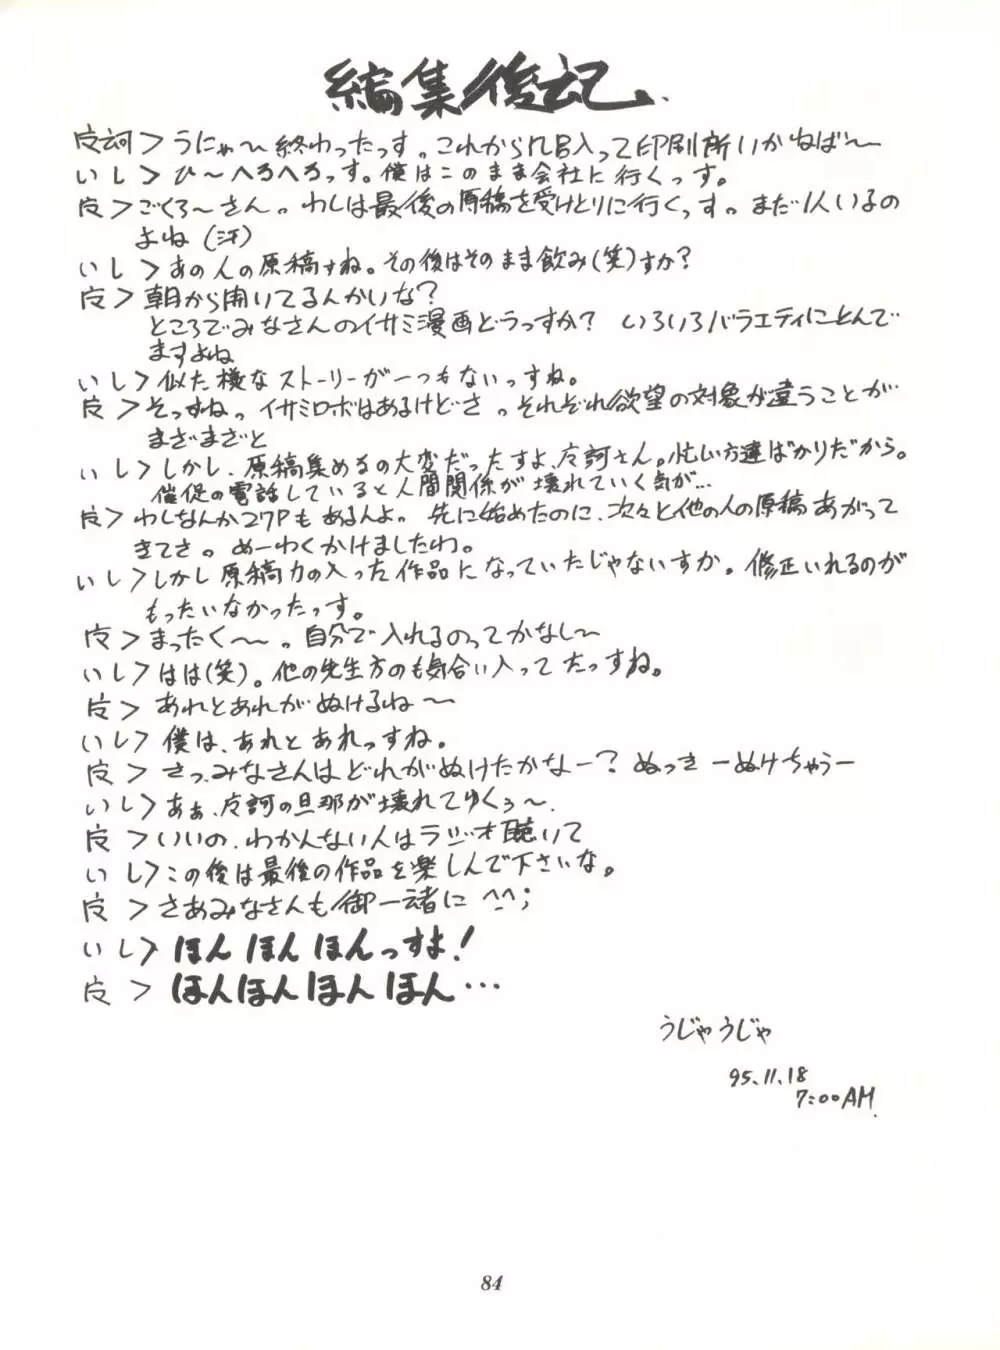 編集後記
訶>うにゃ〜終わったっす。これから風呂入って印刷所いかねば〜
いし>ひ〜へろへろっす。僕はこのまま会社に行くっす。
>ごくろ〜さん。わしは最後の原稿を受けとりに行くっす。まだ1人いるの
よね(汗)
いし>あの人の原稿すね。その後はそのまま飲み(笑)すか?
>朝から開いてるんかいな?
ところでみなさんのイサミ漫画どうっすか? いろいろバラエティにとんで
ますよね
いし>似た様なストーリーが一つもないっすね。
>そっすね。イサミロボはあるけどさ。それぞれ欲望の対象が違うことが
まざまざと
いし>しかし、原稿集めるの大変だったすよ、訶さん。忙しい方達ばかりだから。
催促の電話していると人間関係が壊れていく気が…
>わしなんか27Pもあるんよ。先に始めたのに、次々と他の人の原稿あがって
きてさ。めーわくかけましたわ。
いし>しかし原稿力の入った作品になっていたじゃないすか。修正いれるのが
もったいなかったっす。
>まったく〜〜。自分で入れるのってかなし〜
いし>はは(笑)。他の先生方のも気合い入ってたっすね。
>あれとあれがぬけるね〜
いし>僕は、あれとあれっすね。
>さっ、みなさんはどれがぬけたかなー? ぬっきーぬけちゃうー
いし>あぁ、訶の旦那が壊れてゆくぅ〜、
>いいの、わかんない人はラジオ聴いて
いし>この後は最後の作品を楽しんで下さいな。
>さあみなさんも御一緒に ^-^;
いし>ほんほんほんっすよ!
>ほんほんほんほん…
うじゃうじゃ
95.11.18
7:00AM.
84